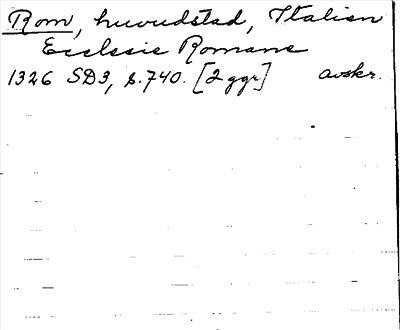 Rom, huvudstad, Italien
Ecclesie Romane
1326 SD3, s. 740. [2 ggr] avskr.